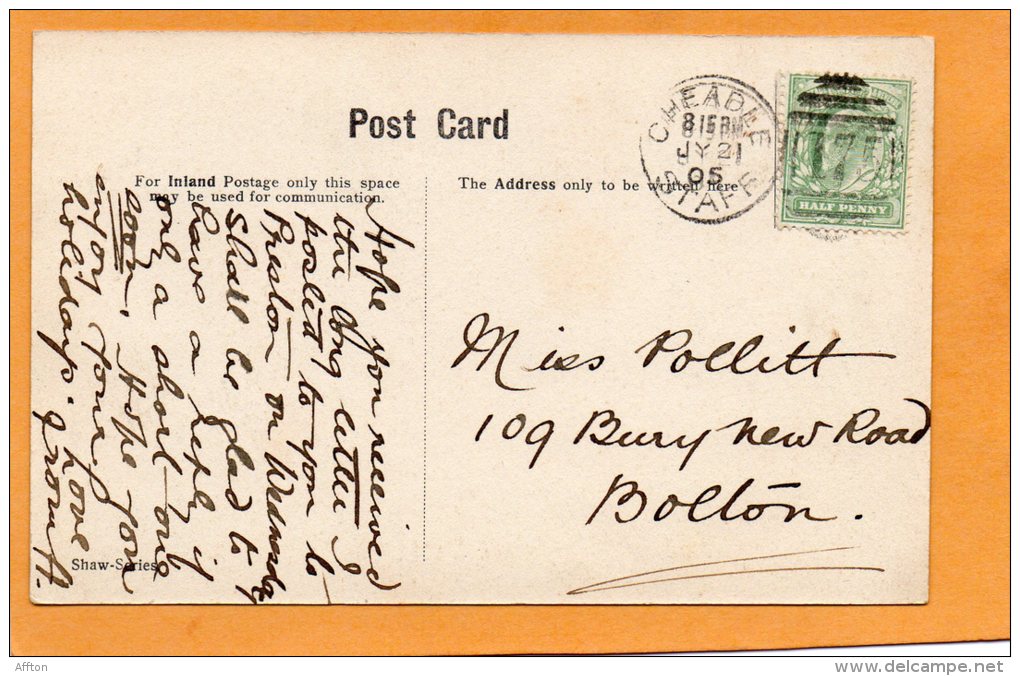 Post Card
For Inland Postage only this space
may be used for communication.
The Address only to be written here
CHEADLE
815PM
JY 21
05
STAFF
HALF PENNY
Hope you received
the long letter I
posted to you to
Preston on Wednesday
Shall be glad to
have a reply if
only a short one
soon. Hope you
enjoy your
holidays. Love
from A.
Miss Pollitt
109 Bury New Road
Bolton.
Shaw-Series
Affton
delcampe.net